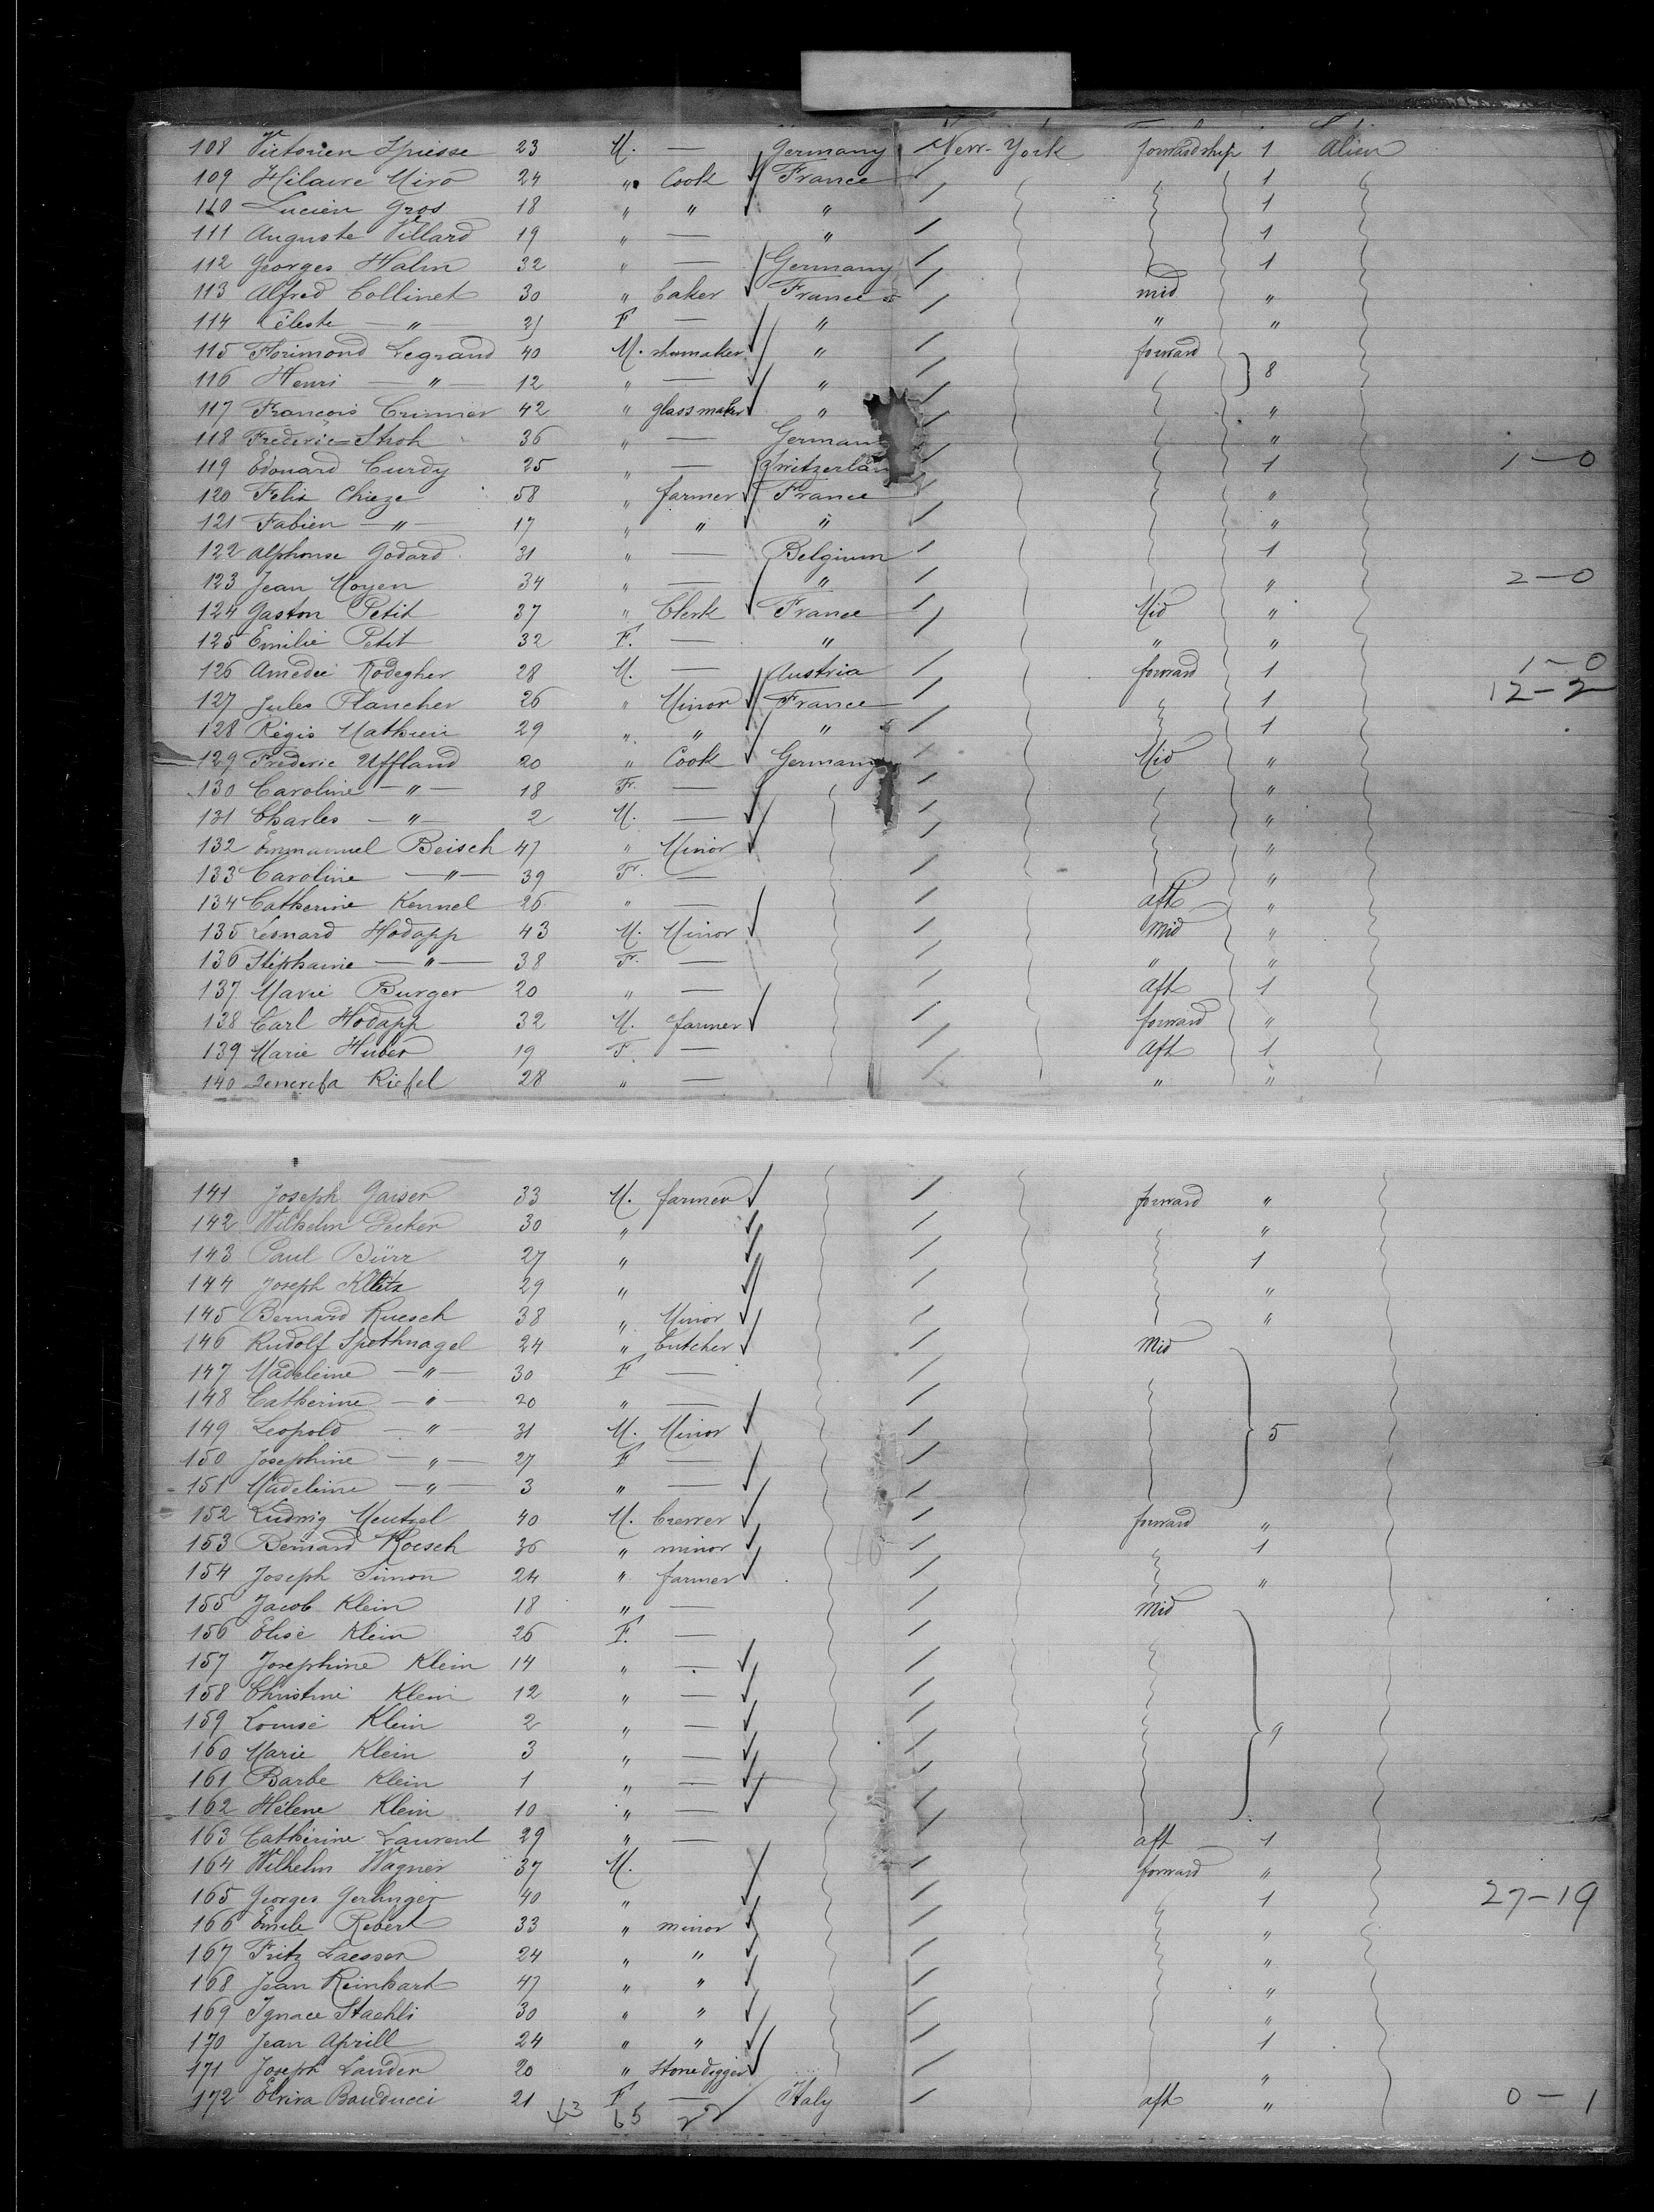 108 Victorien Spiesse 23 M. — Germany New-York forwardship 1 Alien
109 Hilaire Miro 24 " Cook France 1
110 Lucien Gros 18 " " " 1
111 Auguste Villard 19 " — " 1
112 Georges Halm 32 " — Germany 1
113 Alfred Collinet 30 " baker France mid "
114 Céleste — " — 21 F — " " "
115 Florimond Legrand 40 M. shumaker " forward
116 Henri — " — 12 " — " 8
117 François Crinnier 42 " glassmaker " "
118 Frédéric Stroh 36 " — German "
119 Edouard Curdy 25 " — Switzerlan 1 1—0
120 Felix Chieze 58 " farmer France "
121 Fabien — " — 17 " " " "
122 Alphonse Godard 31 " — Belgium 1
123 Jean Moyen 34 " — " " 2—0
124 Gaston Petit 37 " Clerk France Mid "
125 Emilie Petit 32 F. — " " "
126 Amédée Rodegher 28 M. — Austria forward 1 1—0
127 Jules Plancher 26 " Minor France 1 12—2
128 Régis Mathieu 29 " " " 1
129 Frederic Uffland 20 " Cook Germany Mid "
130 Caroline — " — 18 F. — "
131 Charles — " — 2 M. — "
132 Emmanuel Beisch 47 " Minor "
133 Caroline — " — 39 F. — "
134 Catherine Kennel 26 " — aft "
135 Leonard Hodapp 43 M. Minor mid "
136 Stéphanie — " — 38 F. — " "
137 Marie Burger 20 " — aft 1
138 Carl Hodapp 32 M. farmer forward "
139 Marie Huber 19 F. — aft 1
140 Riefel 28 " — " "
141 Joseph Gaiser 33 M. farmer forward "
142 Wilhelm Decker 30 " "
143 Paul Dürr 27 " 1
144 Joseph Kletz 29 " "
145 Bernard Ruesch 38 " Minor "
146 Rudolf Spethnagel 24 " butcher Mid
147 Madeleine — " — 30 F —
148 Catherine — " — 20 " —
149 Leopold — " — 31 M. Minor 5
150 Josephine — " — 27 F —
151 Madeleine — " — 3 " —
152 Ludwig Mentzel 40 M. brewer forward "
153 Bernard Roesch 36 " minor 1
154 Joseph Simon 24 " farmer "
155 Jacob Klein 18 " — mid
156 Elise Klein 26 F. —
157 Josephine Klein 14 " —
158 Christine Klein 12 " —
159 Louise Klein 2 " — 9
160 Marie Klein 3 " —
161 Barbe Klein 1 " —
162 Hélene Klein 10 " —
163 Cathérine Laurent 29 " — aft 1
164 Wilhelm Wagner 37 M. forward "
165 Georges Gerlinger 40 " 1 27—19
166 Emile Rebert 33 " minor "
167 Fritz Laesser 24 " " "
168 Jean Reinhart 47 " " "
169 Ignace Staehli 30 " " "
170 Jean Aprill 24 " " 1
171 Joseph Lauder 20 " stonedigger "
172 Elvira Bauducci 21 F — Italy aft " 0—1
43 65 22